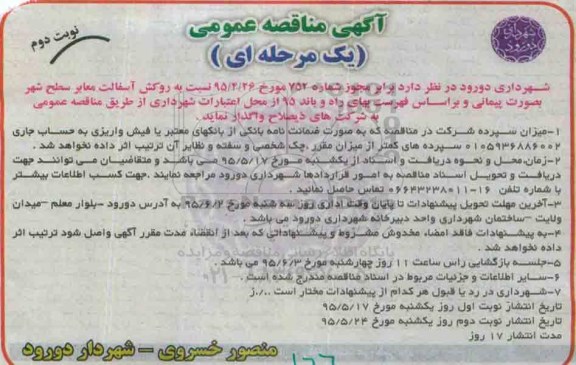 آگهی مناقصه عمومی
(یک مرحله ای)
نوبت دوم
شهرداری دورود
شهرداری دورود در نظر دارد برابر مجوز شماره ۷۵۲ مورخ ۹۵/۲/۲۶ نسبت به روکش آسفالت معابر سطح شهر
بصورت پیمانی و براساس فهرست بهای راه و باند ۹۵ از محل اعتبارات شهرداری از طریق مناقصه عمومی
به شرکت های ذیصلاح واگذار نماید .
۱-میزان سپرده شرکت در مناقصه که به صورت ضمانت نامه بانکی از بانکهای معتبر یا فیش واریزی به حساب جاری
۰۱۰۵۹۳۶۸۸۶۰۰۲ سپرده های کمتر از میزان مقرر ،چک شخصی و سفته و نظایر آن ترتیب اثر داده نخواهد شد .
۲-زمان،محل و نحوه دریافت و اسناد از یکشنبه مورخ ۹۵/۵/۱۷ می باشد و متقاضیان می توانند جهت
دریافت و تحویل اسناد مناقصه به امور قراردادها شهرداری دورود مراجعه نمایند .جهت کسب اطلاعات بیشتر
با شماره تلفن ۱۶-۰۶۶۴۳۲۳۸۰۱۱ تماس حاصل نمائید .
۳-آخرین مهلت تحویل پیشنهادات تا پایان وقت اداری روز سه شنبه مورخ ۹۵/۶/۲ به آدرس دورود -بلوار معلم -میدان
ولایت -ساختمان شهرداری واحد دبیرخانه شهرداری دورود می باشد .
۴-به پیشنهادات فاقد امضاء مخدوش مشروط و پیشنهاداتی که بعد از انقضاء مدت مقرر آگهی واصل شود ترتیب اثر
داده نخواهد شد .
۵-جلسه بازگشایی راس ساعت ۱۱ روز چهارشنبه مورخ ۹۵/۶/۳ می باشد .
۶-سایر اطلاعات و جزئیات مربوط در اسناد مناقصه مندرج شده است .
۷-شهرداری در رد یا قبول هر کدام از پیشنهادات مختار است ../.ز
تاریخ انتشار نوبت اول روز یکشنبه مورخ ۹۵/۵/۱۷
تاریخ انتشار نوبت دوم روز یکشنبه مورخ ۹۵/۵/۲۴
مدت انتشار ۱۷ روز
منصور خسروی – شهردار دورود